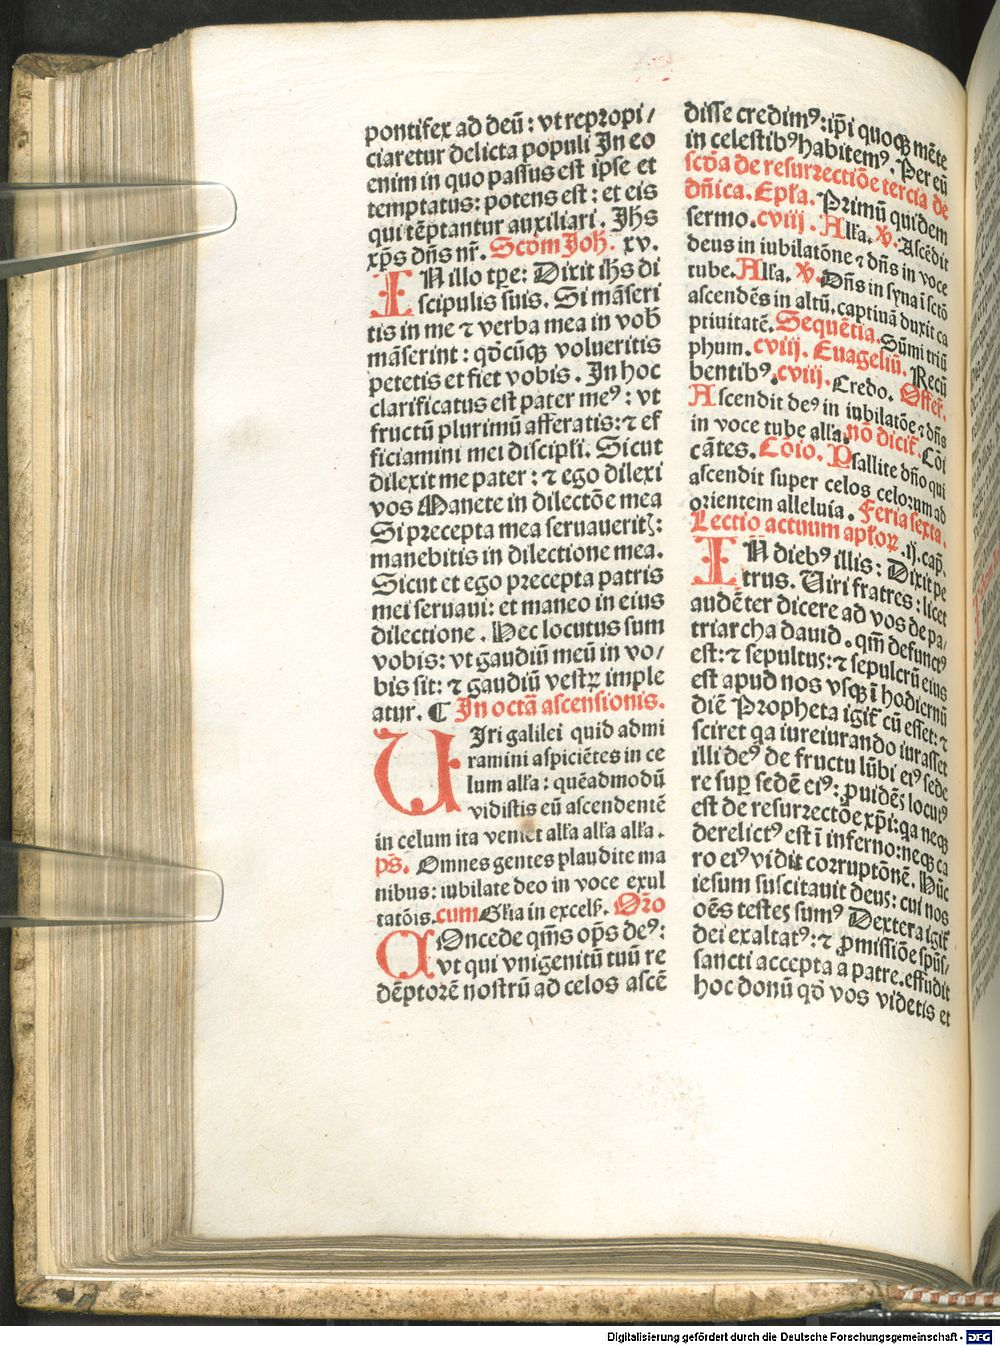 pontifex ad deū : vt repropi/
ciaretur delicta populi In eo
enim in quo passus est ipse et
temptatus: potens est : et eis
qui tēptantur auxiliari. Jhs
xp̄s dn̄s nr̄. Scd̄m Joh̄. xv.
IN illo tp̄e: Dixit ih̄s di
scipulis suis. Si māseri
tis in me ⁊ verba mea in vob̄
māserint : qd̄cūqꝫ volueritis
petetis et fiet vobis. In hoc
clarificatus est pater meꝰ : vt
fructū plurimū afferatis: ⁊ ef
ficiamini mei discipłi. Sicut
dilexit me pater : ⁊ ego dilexi
vos Manete in dilectōe mea
Si precepta mea seruauerit̄ꝭ:
manebitis in dilectione mea.
Sicut et ego precepta patris
mei seruaui: et maneo in eius
dilectione . Hec locutus sum
vobis: vt gaudiū meū in vo/
bis sit: ⁊ gaudiū vestrꝫ imple
atur. ¶ In octā ascensionis.
UIri galilei quid admi
ramini aspiciētes in ce
lum ałła: quēadmodū
vidistis eū ascendentē
in celum ita veniet ałła ałła ałła.
ps̄. Omnes gentes plaudite ma
nibus: iubilate deo in voce exul
tatōis. cum Głia in excels̄. Or̄o
COncede qm̄s op̄s deꝰ:
vt qui vnigenitū tuū re
dēptorē nostrū ad celos ascē
disse credimꝰ: ip̄i quoqꝫ mēte
in celestibꝰ habitemꝰ. Per eū
scd̄a de resurrectiōe tercia de
dn̄ica. Epła. Primū quidem
sermo. cviij. Ałła. ꝟ. Ascēdit
deus in iubilatōne ⁊ dn̄s in voce
tube. Ałła. ꝟ. Dn̄s in syna ī sctō
ascendēs in altū, captiuā duxit ca
ptiuitatē. Sequētia. Sūmi triū
phum. cviij. Euageliū. Recū
bentibꝰ. cviij. Credo. Offer̄.
Ascendit deꝰ in iubilatōe ⁊ dn̄s
in voce tube ałła. nō dicit̄. Cōi
cātes. Cōio. Psallite dn̄o qui
ascendit super celos celorum ad
orientem alleluia. Feria sexta.
Lectio actuum apłoꝝ .ij. cap̄.
IN diebꝰ illis: Dixit pe
trus. Uiri fratres : licet
audēter dicere ad vos de pa/
triarcha dauid . qm̄ defunctꝰ
est: ⁊ sepultus: ⁊ sepulcrū eius
est apud nos vsqꝫ ī hodiernū
diē Propheta igit̄ cū esset: ⁊
sciret qa iureiurando iurasset
illi deꝰ de fructu lūbi eiꝰ sede
re suꝑ sedē eiꝰ: ꝓuidēs locutꝰ
est de resurrectōe xp̄i: qa neqꝫ
derelictꝰ est ī inferno: neqꝫ ca
ro eiꝰ vidit corruptōnē. Hūc
iesum suscitauit deus: cui nos
oēs testes sumꝰ Dextera igit̄
dei exaltatꝰ: ⁊ ꝓmissiōe sp̄us/
sancti accepta a patre. effudit
hoc donū qd̄ vos videtis et
Digitalisierung gefördert durch die Deutsche Forschungsgemeinschaft - DFG